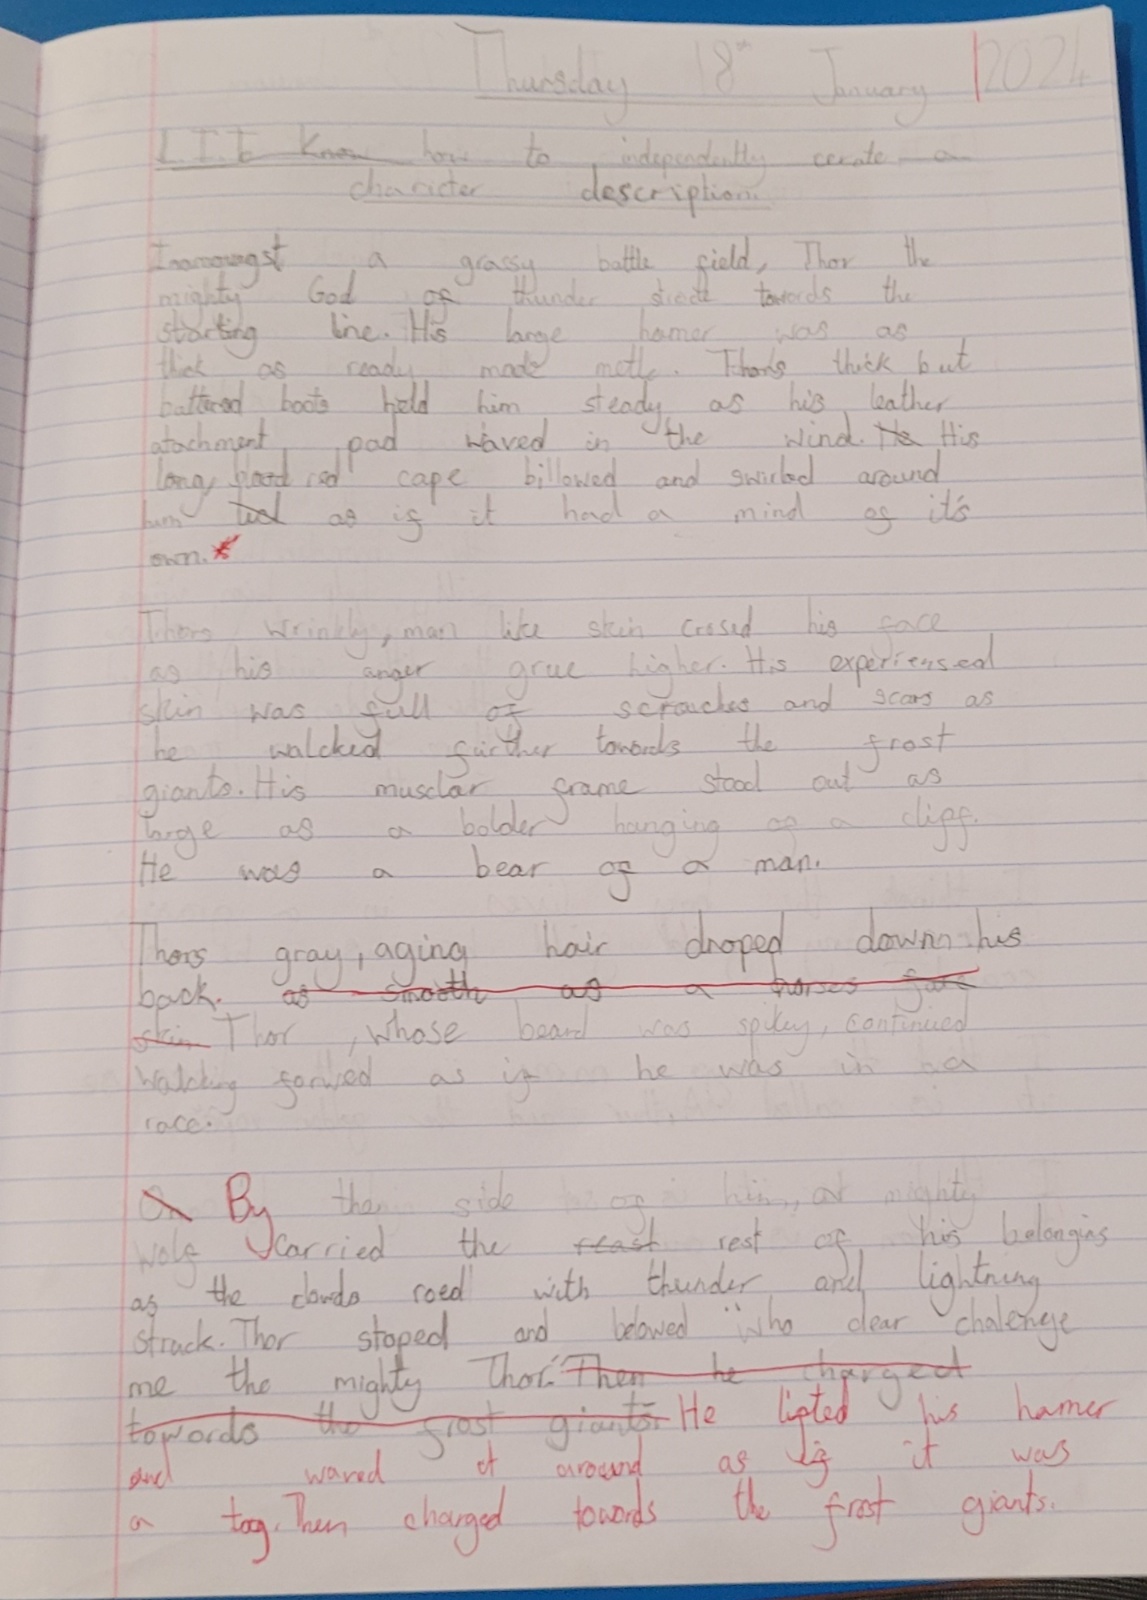 Thursday 18th January 2024
L.I. I Know how to independently cerate a
character description.
Inamoungst a grassy battle field, Thor the
mighty God of thunder towards the
starting line. His large hamer was as
thick as ready made metle. Thors thick but
battered boots held him steady as his leather
atachment pad waved in the wind. His
long, blood red cape billowed and swirled around
him as if it had a mind of it's
own.*
Thors wrinkly, man like skin crosed his face
as his anger grue higher. His experiensed
skin was full of scraches and scars as
he walcked further towards the frost
giants. His musclar frame stood out as
large as a bolder hanging of a cliff.
He was a bear of a man.
Thors gray, aging hair droped down his
back. as smooth as a horses
skin Thor, whose beard was spikey, continued
walcking forwed as if he was in a
race.
By the side of him, a mighty
wolf carried the rest of his belongins
as the clouds roed with thunder and lightning
struck. Thor stoped and belowed "who dear chalenge
me the mighty Thor." Then he charged
towords the frost giants. He lifted his hamer
and waved it around as if it was
a toy. Then charged towords the frost giants.